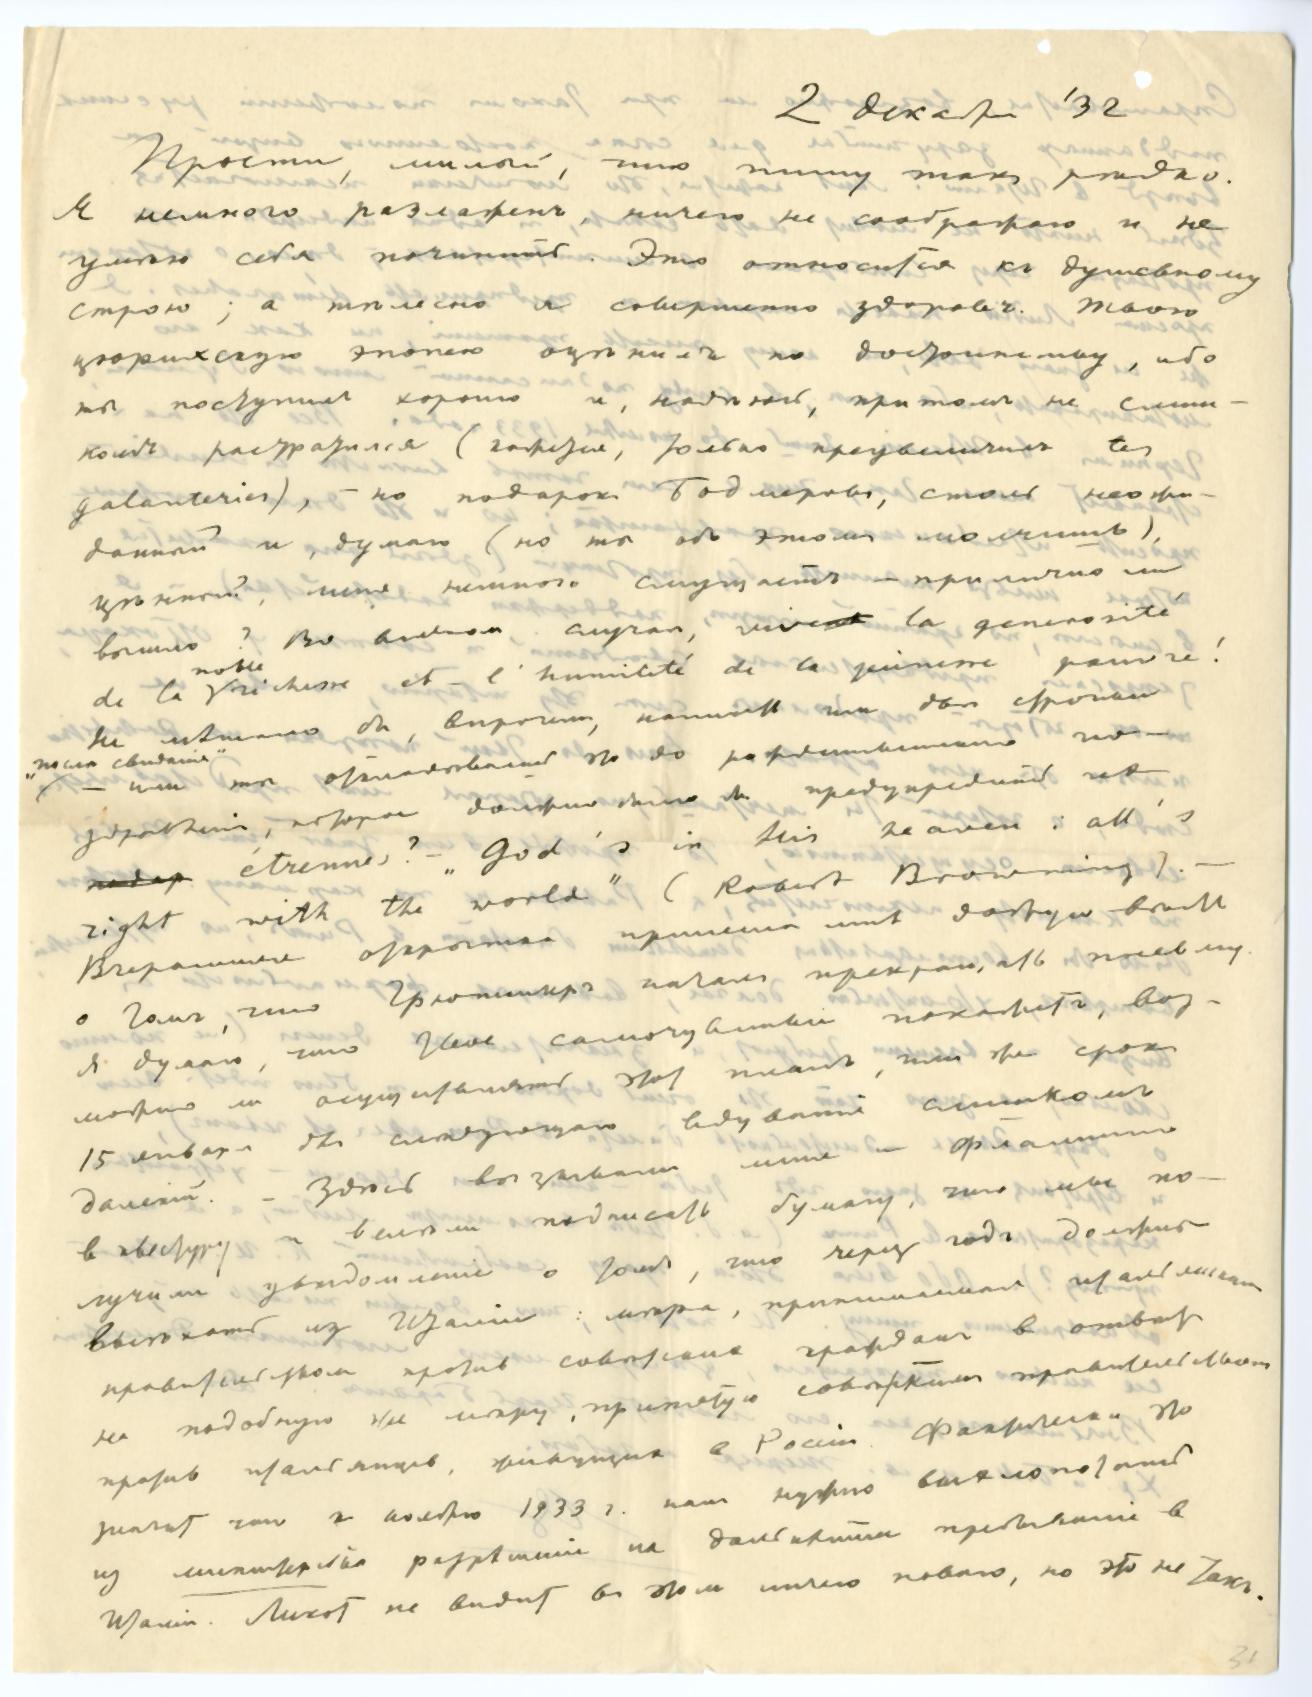 2 декабря '32
Прости, милый, что пишу так рѣдко.
Я немного разлажен, ничего не соображаю и не
умѣю себя починить. Это относится къ душевному
строю; а тѣлесно я совершенно здоровъ. Твою
цюрихскую эпопею оцѣнилъ по достоинству, ибо
ты поступил хорошо и, надѣюсь, притомъ не слиш-
комъ растратился (кажется, только преувеличил tes
galanteries), – но подарок Бодмеровъ, столь неожи-
данный и, думаю (но ты объ этомъ молчишь),
цѣнный?, меня немного смущаетъ – прилично ли
вышло? Во всяком случаѣ, vive la generosité
de la noble richesse et l'humilité de la jeunesse pauvre!
Не мѣшало бы, впрочем, написать им двѣ строчки
"после свиданія"
– или ты откладываешь это до рождественского по-
здравленія, которое должно было бы предупредить les
étrennes? – „God's in his heaven: all's
right with the world" (Robert Browning). –
Вчерашняя открытка принесла мнѣ добрую вѣсть
о том, что Грюнингеръ начал прекращать пневму.
Я думаю, что твое самочувствіе покажетъ, воз-
можно ли осуществить этот планъ, или же срок
15 января для слѣдующаго вдуванія слишкомъ
далекій. – Здѣсь вызывали меня и Фламинго
в квестуру и велѣли подписать бумагу, что мы по-
лучили увѣдомленіе о том, что через годъ должны
выѣхать из Италіи: мѣра, принимаемая итальянским
правительством против совѣтских граждан в отвѣт
на подобную же мѣру, принятую совѣтским правительством
против итальянцев, живущих в Россіи. Фактически это
значит что к ноябрю 1933 г. нам нужно выхлопотать
из министерства разрѣшеніе на дальнѣйшее пребываніе в
Италіи. Ликот не видит въ этом ничего новаго, но это не такъ.
31